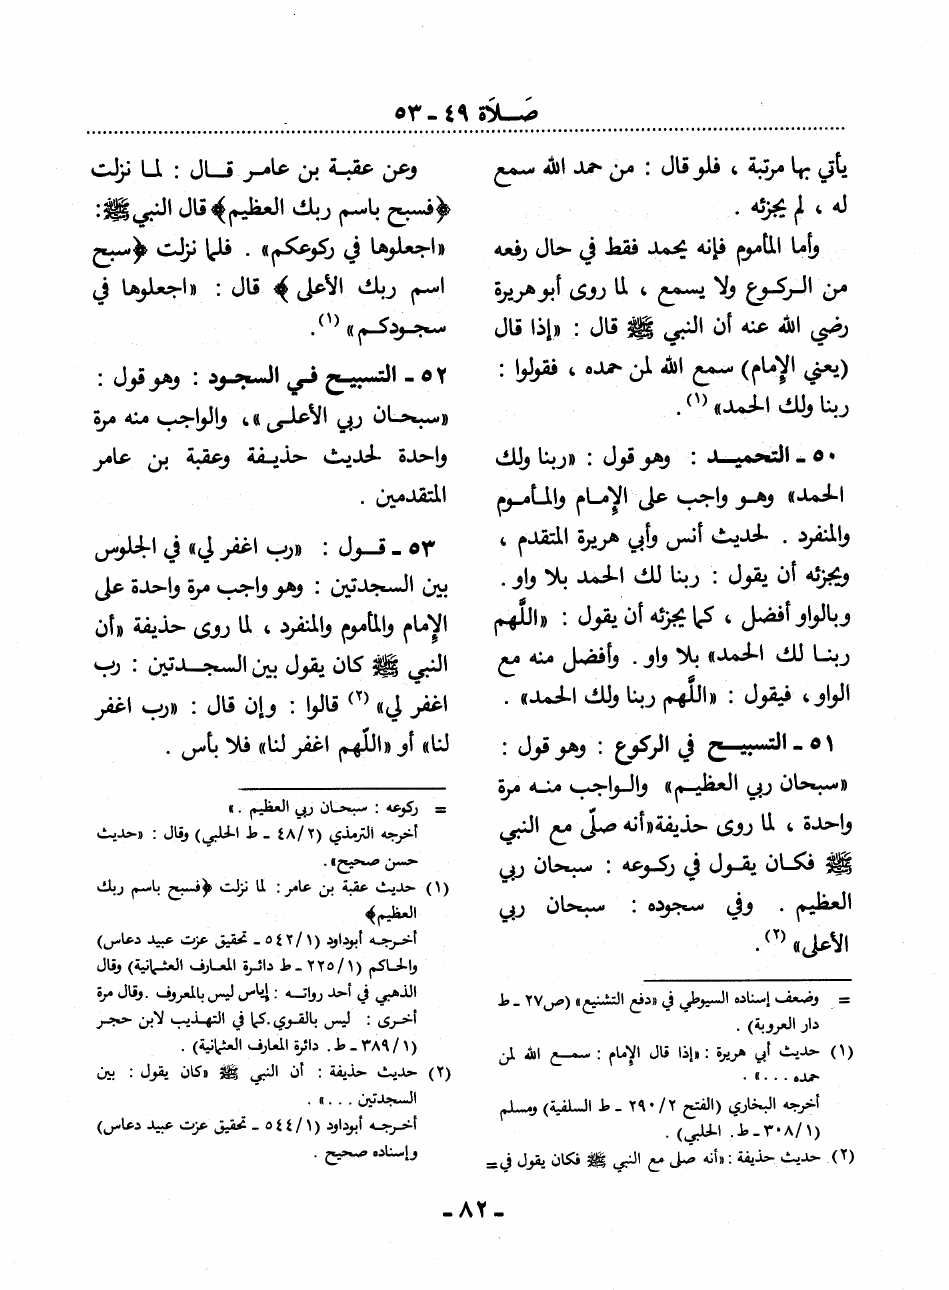 صَـلاَة ٤٩ - ٥٣
يأتي بها مرتبة ، فلو قال : من حمد الله سمع
له ، لم يجزئه .
وأما المأموم فإنه يحمد فقط في حال رفعه
من الـركـوع ولا يسمع ، لما روى أبو هريرة
رضي الله عنه أن النبي ﷺ قال : «إذا قال
(يعني الإمام) سمع الله لمن حمده ، فقولوا :
ربنا ولك الحمد» (١).
٥٠ - التحميـد : وهو قول : «ربنا ولك
الحمد» وهـو واجب على الإمـام والمـأمـوم
والمنفرد . لحديث أنس وأبي هريرة المتقدم ،
ويجزئه أن يقول : ربنا لك الحمد بلا واو .
وبالواو أفضل ، كما يجزئه أن يقول : «اللَّهم
ربنـا لك الحمد» بلا واو . وأفضل منه مع
الواو ، فيقول : «اللَّهم ربنا ولك الحمد» .
٥١ - التسبيـح في الركوع : وهو قول :
«سبحان ربي العظيـم» والـواجب منـه مرة
واحدة ، لما روى حذيفة «أنه صلَّى مع النبي
ﷺ فكـان يقـول في ركـوعه : سبحان ربي
العظيم . وفي سجوده : سبحان ربي
الأعلى» (٢).
= وضعف إسناده السيوطي في «دفع التشنيع» (ص٢٧ - ط
دار العروبة) .
(١) حديث أبي هريرة : «إذا قال الإمام : سمـع الله لمن
حمده . . . » .
أخرجه البخاري (الفتح ٢/ ٢٩٠ - ط السلفية) ومسلم
(١/ ٣٠٨ - ط. الحلبي) .
(٢) حديث حذيفة : «أنه صلى مع النبي ﷺ فكان يقول في=
وعن عقبـة بن عامـر قـال : لمـا نزلت
﴿فسبح باسم ربك العظيم﴾ قال النبي ﷺ:
«اجعلوها في ركوعكم» . فلما نزلت ﴿سبح
اسم ربك الأعلى﴾ قال : «اجعلوها في
سجـودكـم» (١).
٥٢ - التسبيـح فـي السجـود : وهو قول :
«سبحـان ربي الأعلـى»، والواجب منه مرة
واحدة لحديث حذيـفة وعقبة بن عامر
المتقدمين .
٥٣ - قـول : «رب اغفر لي» في الجلوس
بين السجدتين : وهو واجب مرة واحدة على
الإمام والمأموم والمنفرد ، لما روى حذيفة «أن
النبي ﷺ كان يقول بين السجـدتين : رب
اغفر لي» (٢) قالوا : وإن قال : «رب اغفر
لنا» أو «اللَّهم اغفر لنا» فلا بأس .
= ركوعه : سبحـان ربي العظيم . »
أخرجه الترمذي (٢/ ٤٨ - ط الحلبي) وقال : «حديث
حسن صحيح».
(١) حديث عقبة بن عامر : لما نزلت ﴿فسبح باسم ربك
العظيم﴾
أخـرجـه أبوداود (١/ ٥٤٢ - تحقيق عزت عبيد دعاس)
والحاكم (١/ ٢٢٥ - ط دائـرة المعـارف العثمانية) وقال
الذهبي في أحد رواتـه : إياس ليس بالمعروف . وقال مرة
أخـرى : ليس بالقوي . كما في التهذيب لابن حجـر
(١/ ٣٨٩ - ط . دائرة المعارف العثمانية) .
(٢) حديث حذيفة : أن النبي ﷺ «كان يقول : بين
السجدتين . . . » .
أخـرجـه أبوداود (١/ ٥٤٤ - تحقيق عزت عبيد دعاس)
وإسناده صحيح .
- ٨٢ -